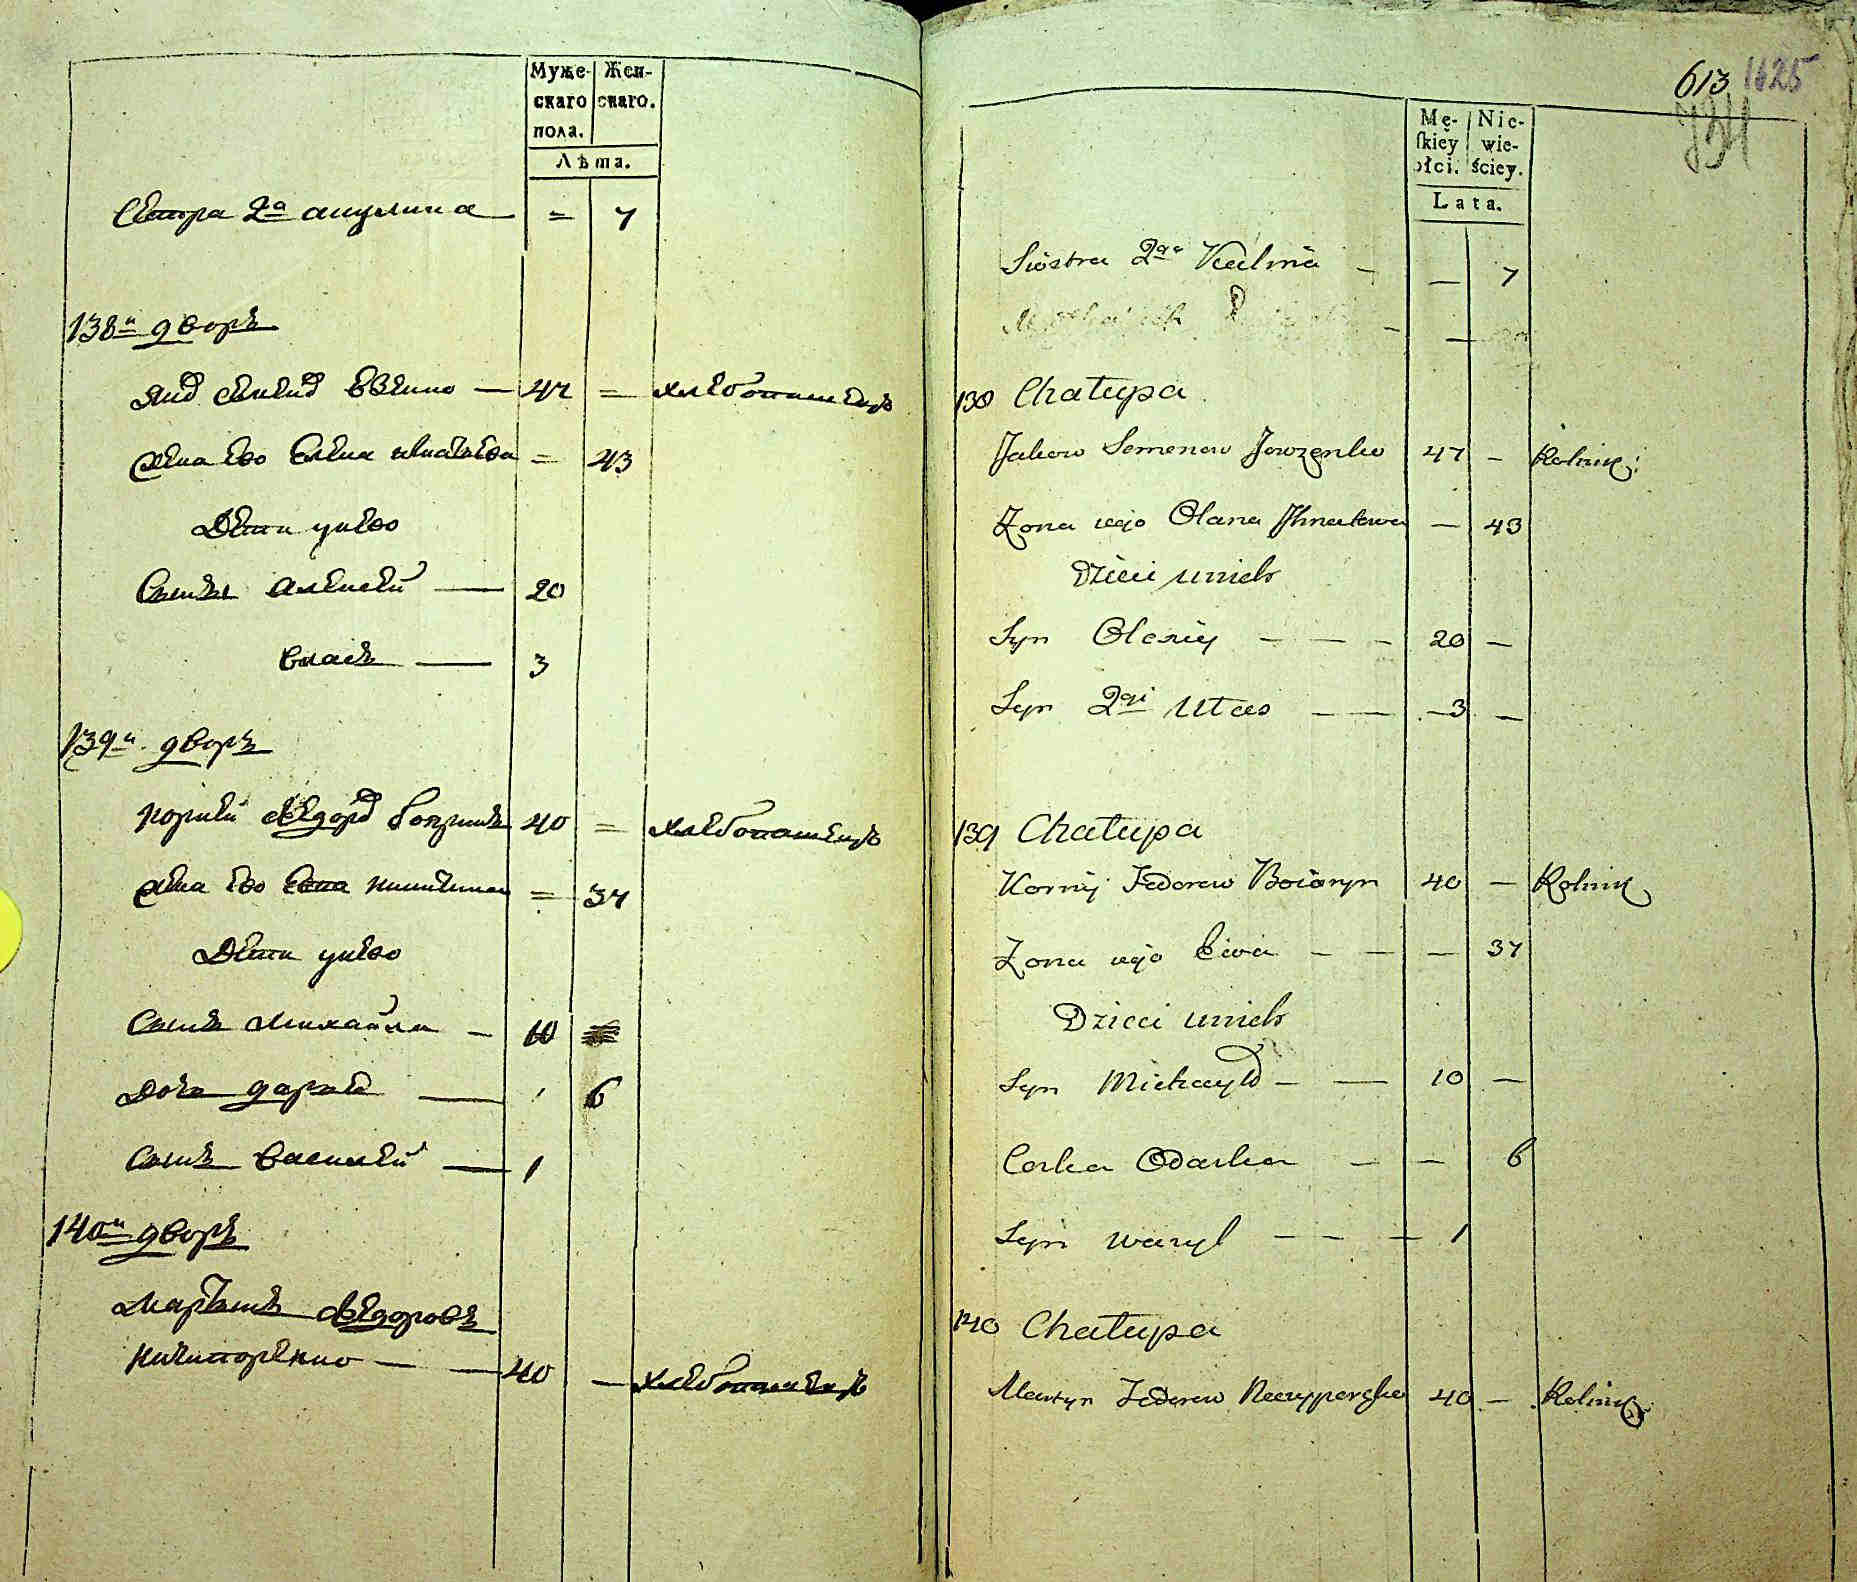 Муже- Жен-
скаго скаго.
пола.
Лѣта.
Сестра 2а акулина = 7
138й дворъ
47 = хлебопашецъ
жена Ево Елена игнатьева = 43
Дети унево
Сынъ алексей — 20
Власъ — 3
139й дворъ
корней Федоров бояринъ 40 = хлебопашецъ
жена Ево Ева = 37
Дети унево
Сынъ михайла — 10
Дочь дарья — 6
Сынъ василей — 1
140й дворъ
мартынъ Федоровъ
ничипоренко — 40 — хлебопашецъ
613 1625
Mę- Nie-
skiey wie-
płci. ściey.
Lata.
Siostra 2ga Kulina — — 7
138 Chałupa
Jakow Semenow Jowzenko 47 — Rolnik
Zona iego Olana Ihnatowa — 43
Dzieci unich
Syn Olexiy — — — 20 —
Syn 2gi Ułas — — — 3 —
139 Chałupa
Korniy Fedorow Boiaryn 40 — Rolnik
Zona iego Ewa — — — 37
Dzieci unich
Syn Michayło — — 10 —
Corka Odarka — — 6
Syn Wasyl — — — 1
140 Chałupa
Martyn Fedorow Neczyporenko 40 — Rolnik